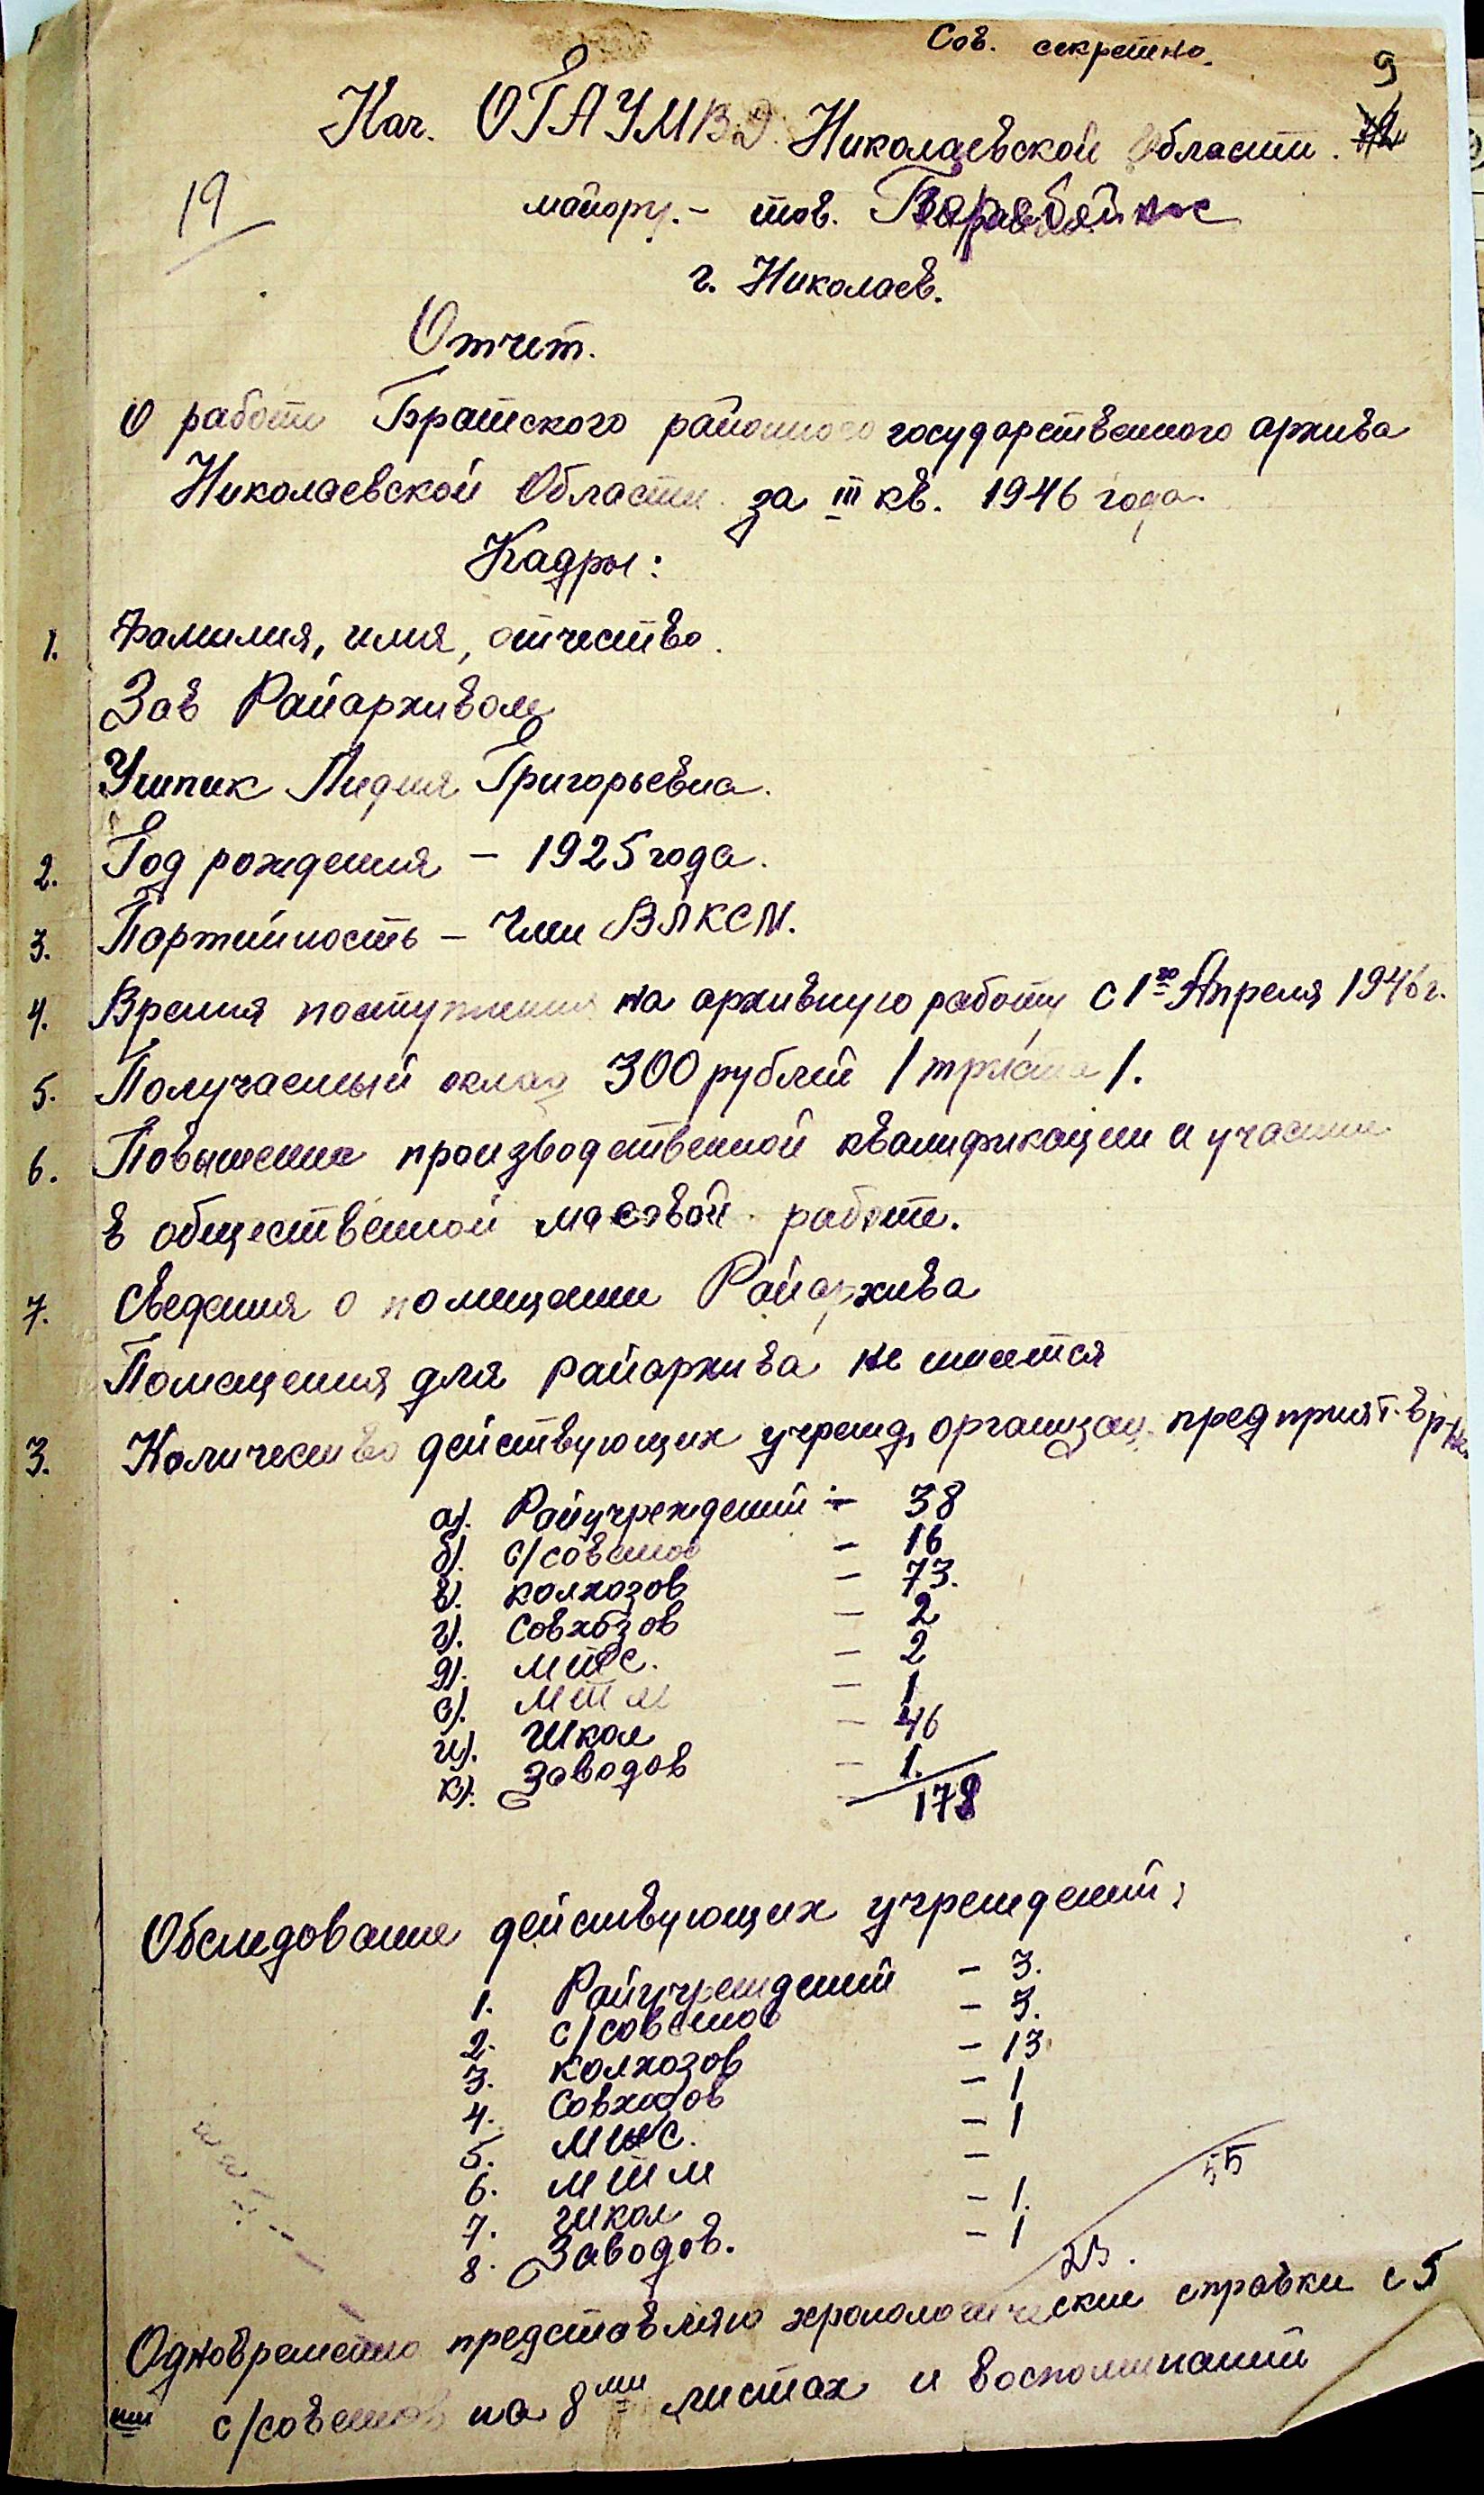 Сов. секретно.
9
Нач. ОГАУМВД Николаевской Области.
19
майору. - тов.
г. Николаев.
Отчет.
О работе Братского районного государственного архива
Николаевской Области за III кв. 1946 года.
Кадры:
1. Фамилия, имя, отчество.
Зав Райархивом
Лидия Григорьевна.
2. Год рождения - 1925 года.
3. Партийность - Член ВЛКСМ.
4. Время поступления на архивную работу с 1го Апреля 1946 г.
5. Получаемый оклад 300 рублей /триста/.
6. Повышение производственной квалификации и участие
в общественной масовой работе.
7. Сведения о помещении Райархива
Помещения для райархива не имеется
3. Количество действующих учрежд, организац. предприят. в р-не.
а). Райучреждений - 38
б). с/советов - 16
в). колхозов - 73.
г). Совхозов - 2
д). МТС. - 2
е). МТМ - 1
и). Школ - 46
к). Заводов - 1.
178
Обследование действующих учреждений:
1. Райучреждений - 3.
2. с/советов - 3.
3. колхозов - 13.
4. Совхозов - 1
5. МТС. - 1
6. МТМ -
7. Школ - 1.
8. Заводов. - 1
55
23.
Одновременно представляю хронологические справки с 5
ти с/советов на 8ми листах и воспоминаний